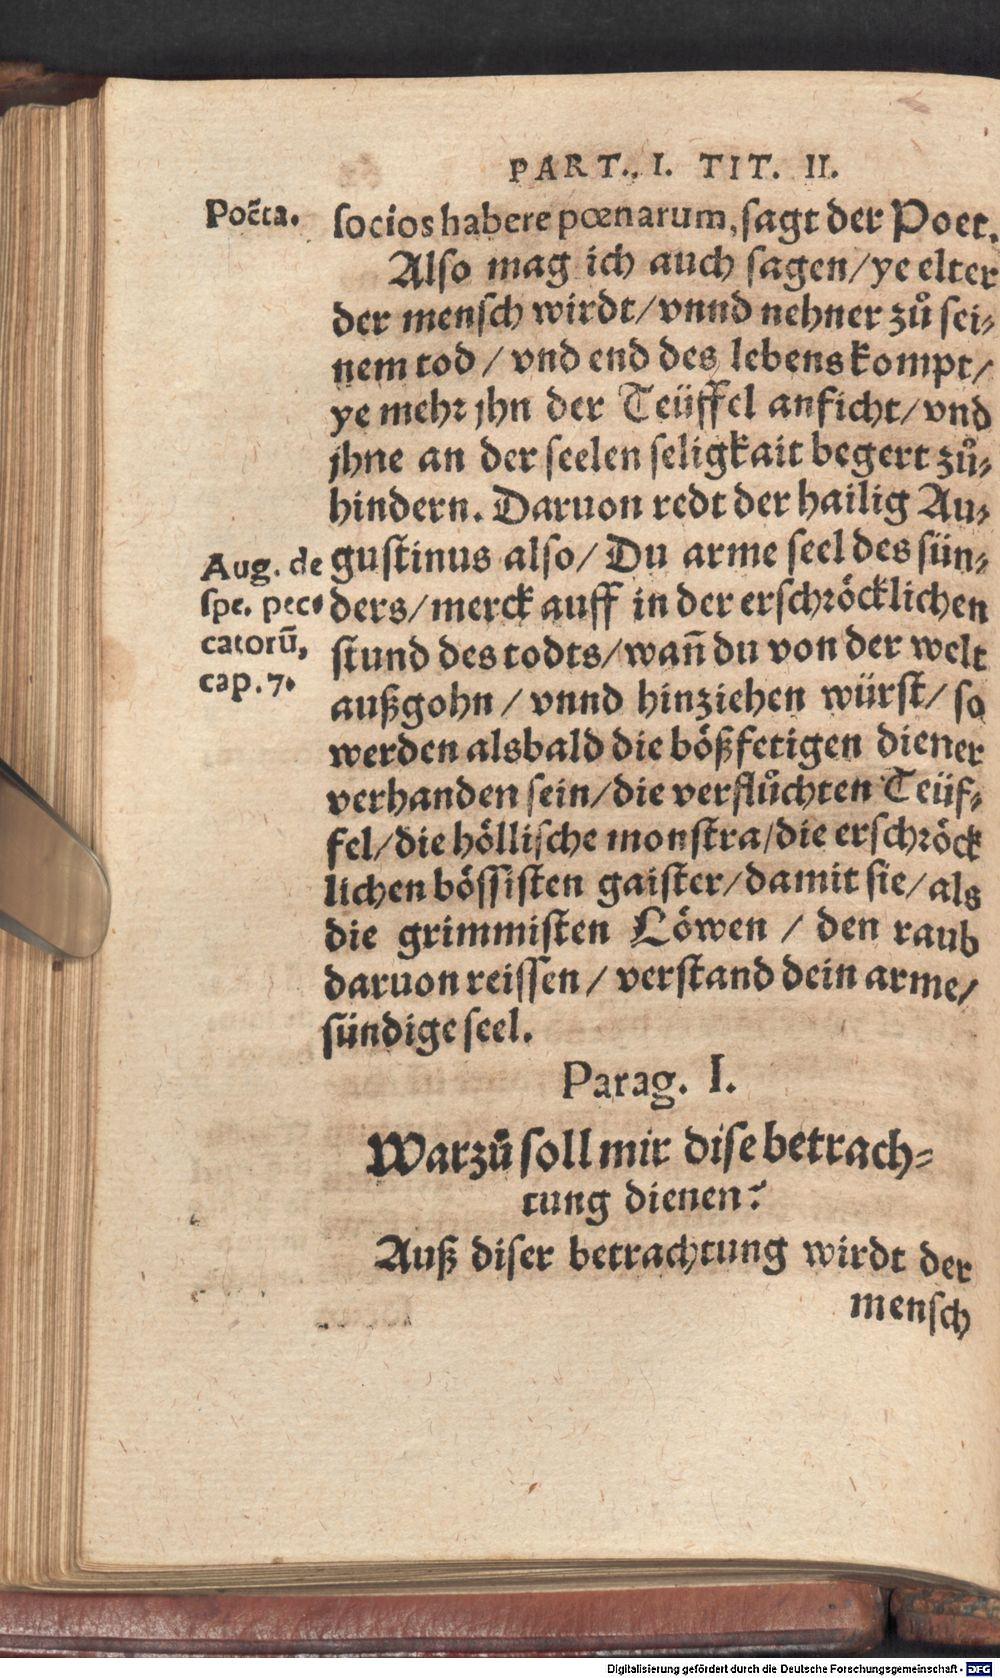 PART. I. TIT. II.
Poëta.
socios habere pœnarum, sagt der Poet.
Also mag ich auch sagen/ ye elter
der mensch wirdt/ vnnd nehner zů sei-
nem tod / vnd end des lebens kompt/
ye mehr jhn der Teüffel anficht/ vnd
jhne an der seelen seligkait begert zů-
hindern. Daruon redt der hailig Au-
gustinus also/ Du arme seel des sün-
Aug. de
spe. pec-
catorũ,
cap. 7.
ders/ merck auff in der erschröcklichen
stund des todts/ wañ du von der welt
außgohn / vnnd hinziehen würst/ so
werden alsbald die bößfertigen diener
verhanden sein/ die verflůchten Teüf-
fel/ die höllische monstra/ die erschröck
lichen bössisten gaister/ damit sie/ als
die grimmisten Löwen / den raub
daruon reissen / verstand dein arme/
sündige seel.
Parag. I.
Warzů soll mir dise betrach-
tung dienen?
Auß diser betrachtung wirdt der
mensch
Digitalisierung gefördert durch die Deutsche Forschungsgemeinschaft - DFG